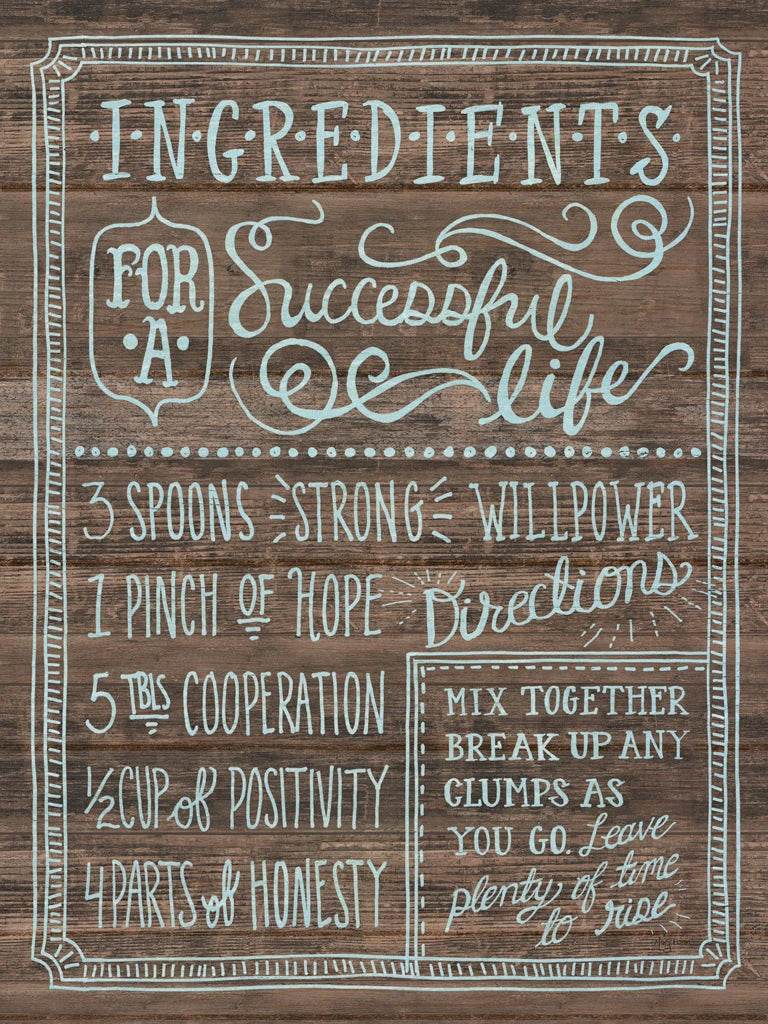 INGREDIENTS
FOR A
Successful
life
3 SPOONS STRONG WILLPOWER
1 PINCH OF HOPE
5 TBLS COOPERATION
½ CUP of POSITIVITY
4 PARTS of HONESTY
Directions
MIX TOGETHER
BREAK UP ANY
CLUMPS AS
YOU GO. Leave
plenty of time
to rise